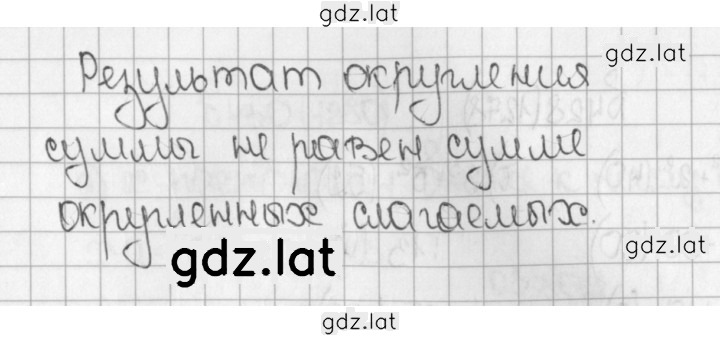 gdz.lat
gdz.lat
Результат округления
суммы не равен сумме
округленных слагаемых.
gdz.lat
gdz.lat
gdz.lat